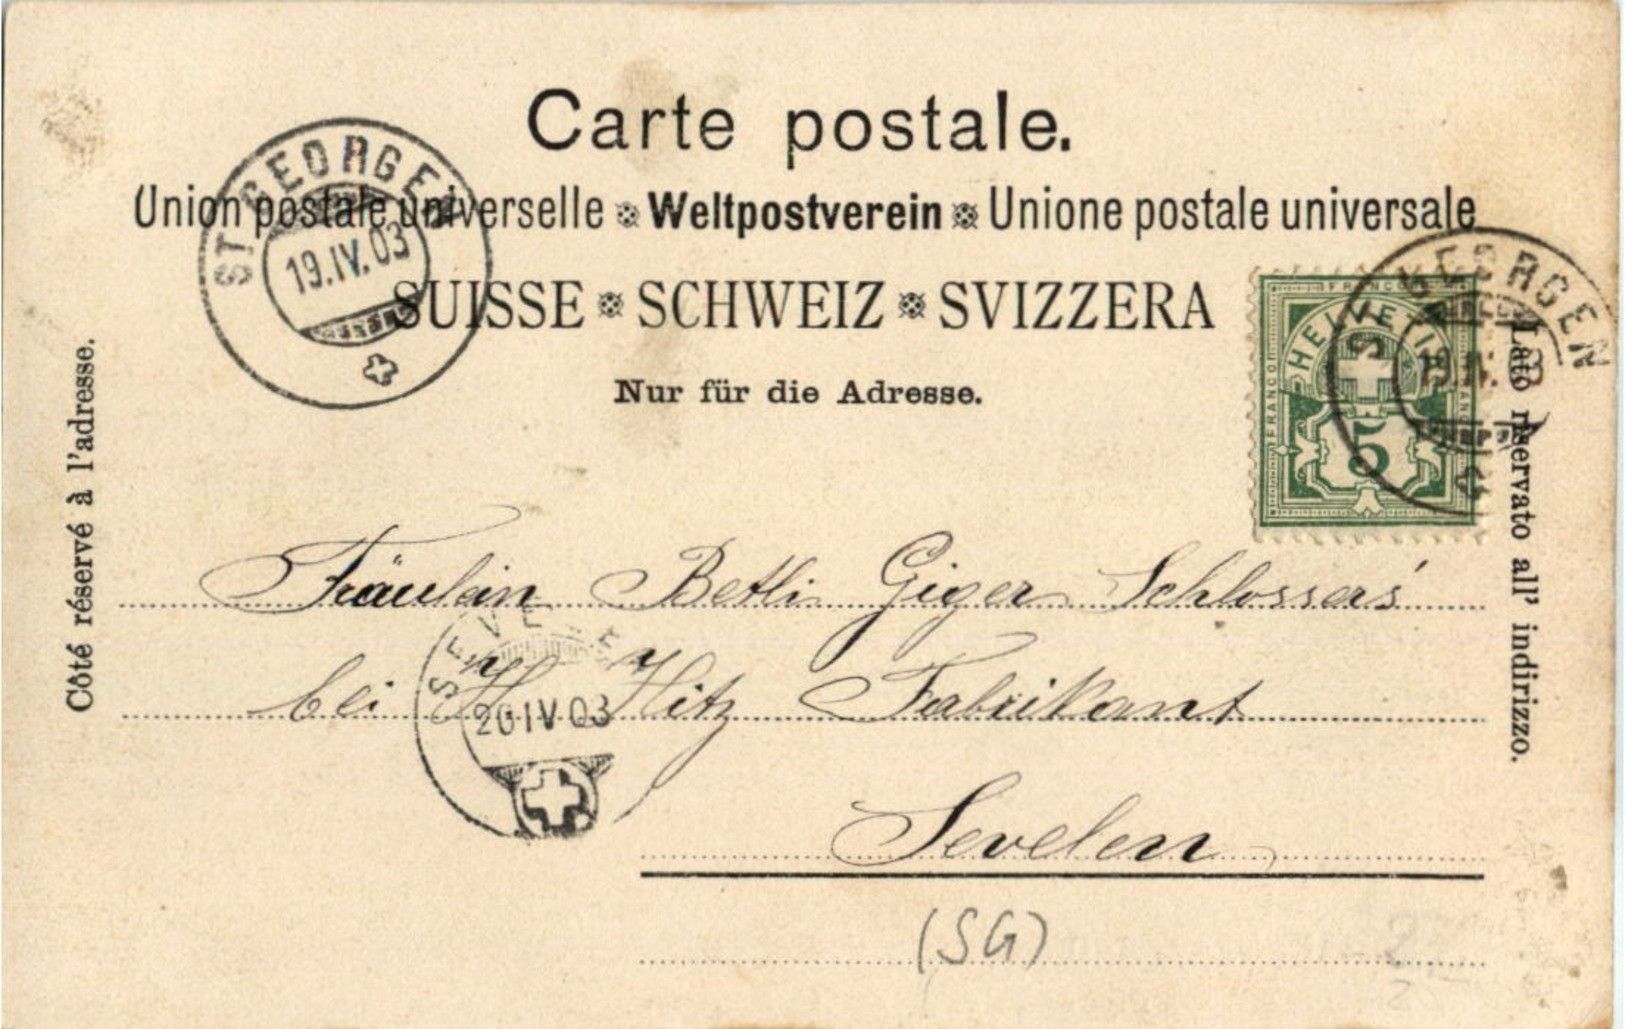 Carte postale.
Union postale universelle ※ Weltpostverein ※ Unione postale universale
SUISSE ※ SCHWEIZ ※ SVIZZERA
Nur für die Adresse.
Côté réservé à l'adresse.
Lato riservato all' indirizzo.
ST. GEORGEN
19.IV.03
FRANCO
HELVETIA
5
GEORGEN
19.IV.
Fräulein Betli Giger Schlossers'
bei H. Hitz Fabrikant
SEVELEN
20 IV 03
Sevelen
(SG)